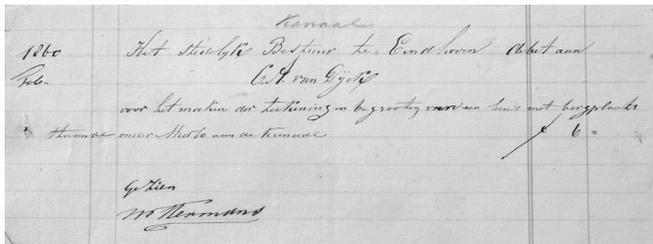 Kanaal
1860 Het stedelijk Bestuur te Eindhoven debet aan
Feb. C.A. van Dijck
voor het maken der teekening en begrooting van een huis met bergplaats
staande onder Stratum aan de Kanaal f 6 =
Gezien